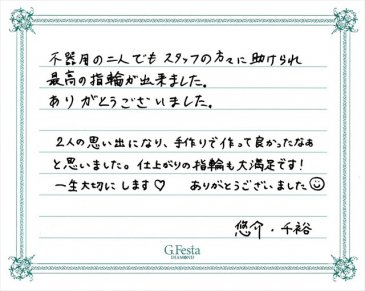 不器用の二人でもスタッフの方々に助けられ
最高の指輪が出来ました。
ありがとうございました。
2人の思い出になり、手作りで作って良かったなぁ
と思いました。仕上がりの指輪も大満足です!
一生大切にします♡ ありがとうございました☺
悠介・千裕
G.Festa
DIAMOND